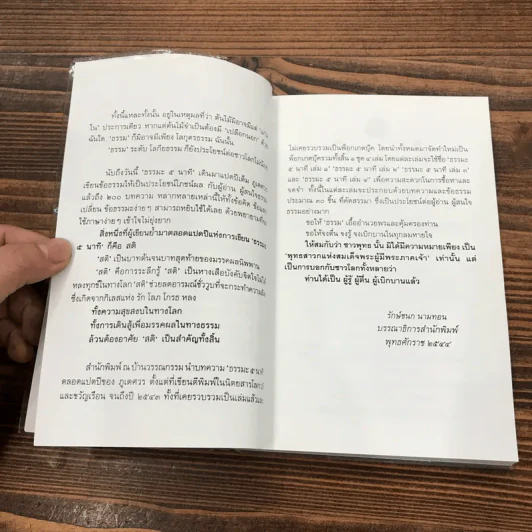 ทั้งนี้แหละทั้งนั้น อยู่ในเหตุผลที่ว่า ต้นไม้มิอาจมีแต่ 'แก่น
ใน' ประการเดียว หากแต่ต้นไม้จำเป็นต้องมี 'เปลือกนอก' ด้วย
ฉันใด 'ธรรม' ก็มิอาจมีเพียง โลกุตรธรรม ฉันนั้น
'ธรรม' ระดับ โลกียธรรม ก็ยังประโยชน์ต่อชาวโลกไม่น้อย
นับถึงวันนี้ 'ธรรมะ ๕ นาที' เดินมาแปดปีเต็ม ภูเตศวร
เขียนข้อธรรมให้เป็นประโยชน์โภคผล กับผู้อ่าน ผู้สนใจธรรม
แล้วถึง ๒๐๐ บทความ หลากหลายเหล่านี้ให้ทั้งข้อคิด
เปลี่ยน ข้อธรรมง่ายๆ สามารถหยิบใช้ได้เลย ด้วยพยายาม
ใช้ภาษาง่ายๆ เข้าใจไม่ยุ่งยาก
สิ่งหนึ่งที่ผู้เขียนย้ำมาตลอดแปดปีแห่งการเขียน 'ธรรมะ
๕ นาที' ก็คือ สติ
'สติ' เป็นบาทต้นจนบาทสุดท้ายของมรรคผลนิพพาน
'สติ' คือการระลึกรู้ 'สติ' เป็นหางเสือบังคับจิตใจไม่ให้
หลงทุกข์ในทางโลก 'สติ' ช่วยลดอารมณ์ชั่ววูบที่จะกระทำความผิด
ซึ่งเกิดจากกิเลสแห่ง รัก โลภ โกรธ หลง
ทั้งความสุขสงบในทางโลก
ทั้งการเดินสู่เพื่อมรรคผลในทางธรรม
ล้วนต้องอาศัย 'สติ' เป็นสำคัญทั้งสิ้น
สำนักพิมพ์ ณ บ้านวรรณกรรม นำบทความ 'ธรรมะ ๕ นาที'
ตลอดแปดปีของ ภูเตศวร ตั้งแต่ที่เขียนตีพิมพ์ในนิตยสารโลกทิพย์
และขวัญเรือน จนถึงปี ๒๕๔๓ ทั้งที่เคยรวบรวมเป็นเล่มแล้วและ
ไม่เคยรวบรวมเป็นพ็อกเกตบุ๊ค โดยนำทั้งหมดมาจัดทำใหม่เป็น
พ็อกเกตบุ๊ครวมทั้งสิ้น ๑ ชุด ๔ เล่ม โดยแต่ละเล่มจะใช้ชื่อ 'ธรรมะ
๕ นาที เล่ม ๑' 'ธรรมะ ๕ นาที เล่ม ๒' 'ธรรมะ ๕ นาที เล่ม
๓' และ 'ธรรมะ ๕ นาที เล่ม ๔' เพื่อความสะดวกในการซื้อหาและ
จดจำ ทั้งนี้ในแต่ละเล่มจะประกอบด้วยบทความและข้อธรรม
ประมาณ ๓๐ ชิ้น ที่คัดสรรมา ซึ่งเป็นประโยชน์ต่อผู้อ่าน ผู้สนใจ
ธรรมอย่างมาก
ขอให้ 'ธรรม' เอื้ออำนวยพรและคุ้มครองท่าน
ขอให้จงตื่น จงรู้ จงเบิกบานในทุกลมหายใจ
ให้สมกับว่า ชาวพุทธ นั้น มิได้มีความหมายเพียง เป็น
'พุทธสาวกแห่งสมเด็จพระผู้มีพระภาคเจ้า' เท่านั้น แต่
เป็นการบอกกับชาวโลกทั้งหลายว่า
ท่านได้เป็น ผู้รู้ ผู้ตื่น ผู้เบิกบานแล้ว
รักษ์ชนก นามทอน
บรรณาธิการสำนักพิมพ์
พุทธศักราช ๒๕๔๔